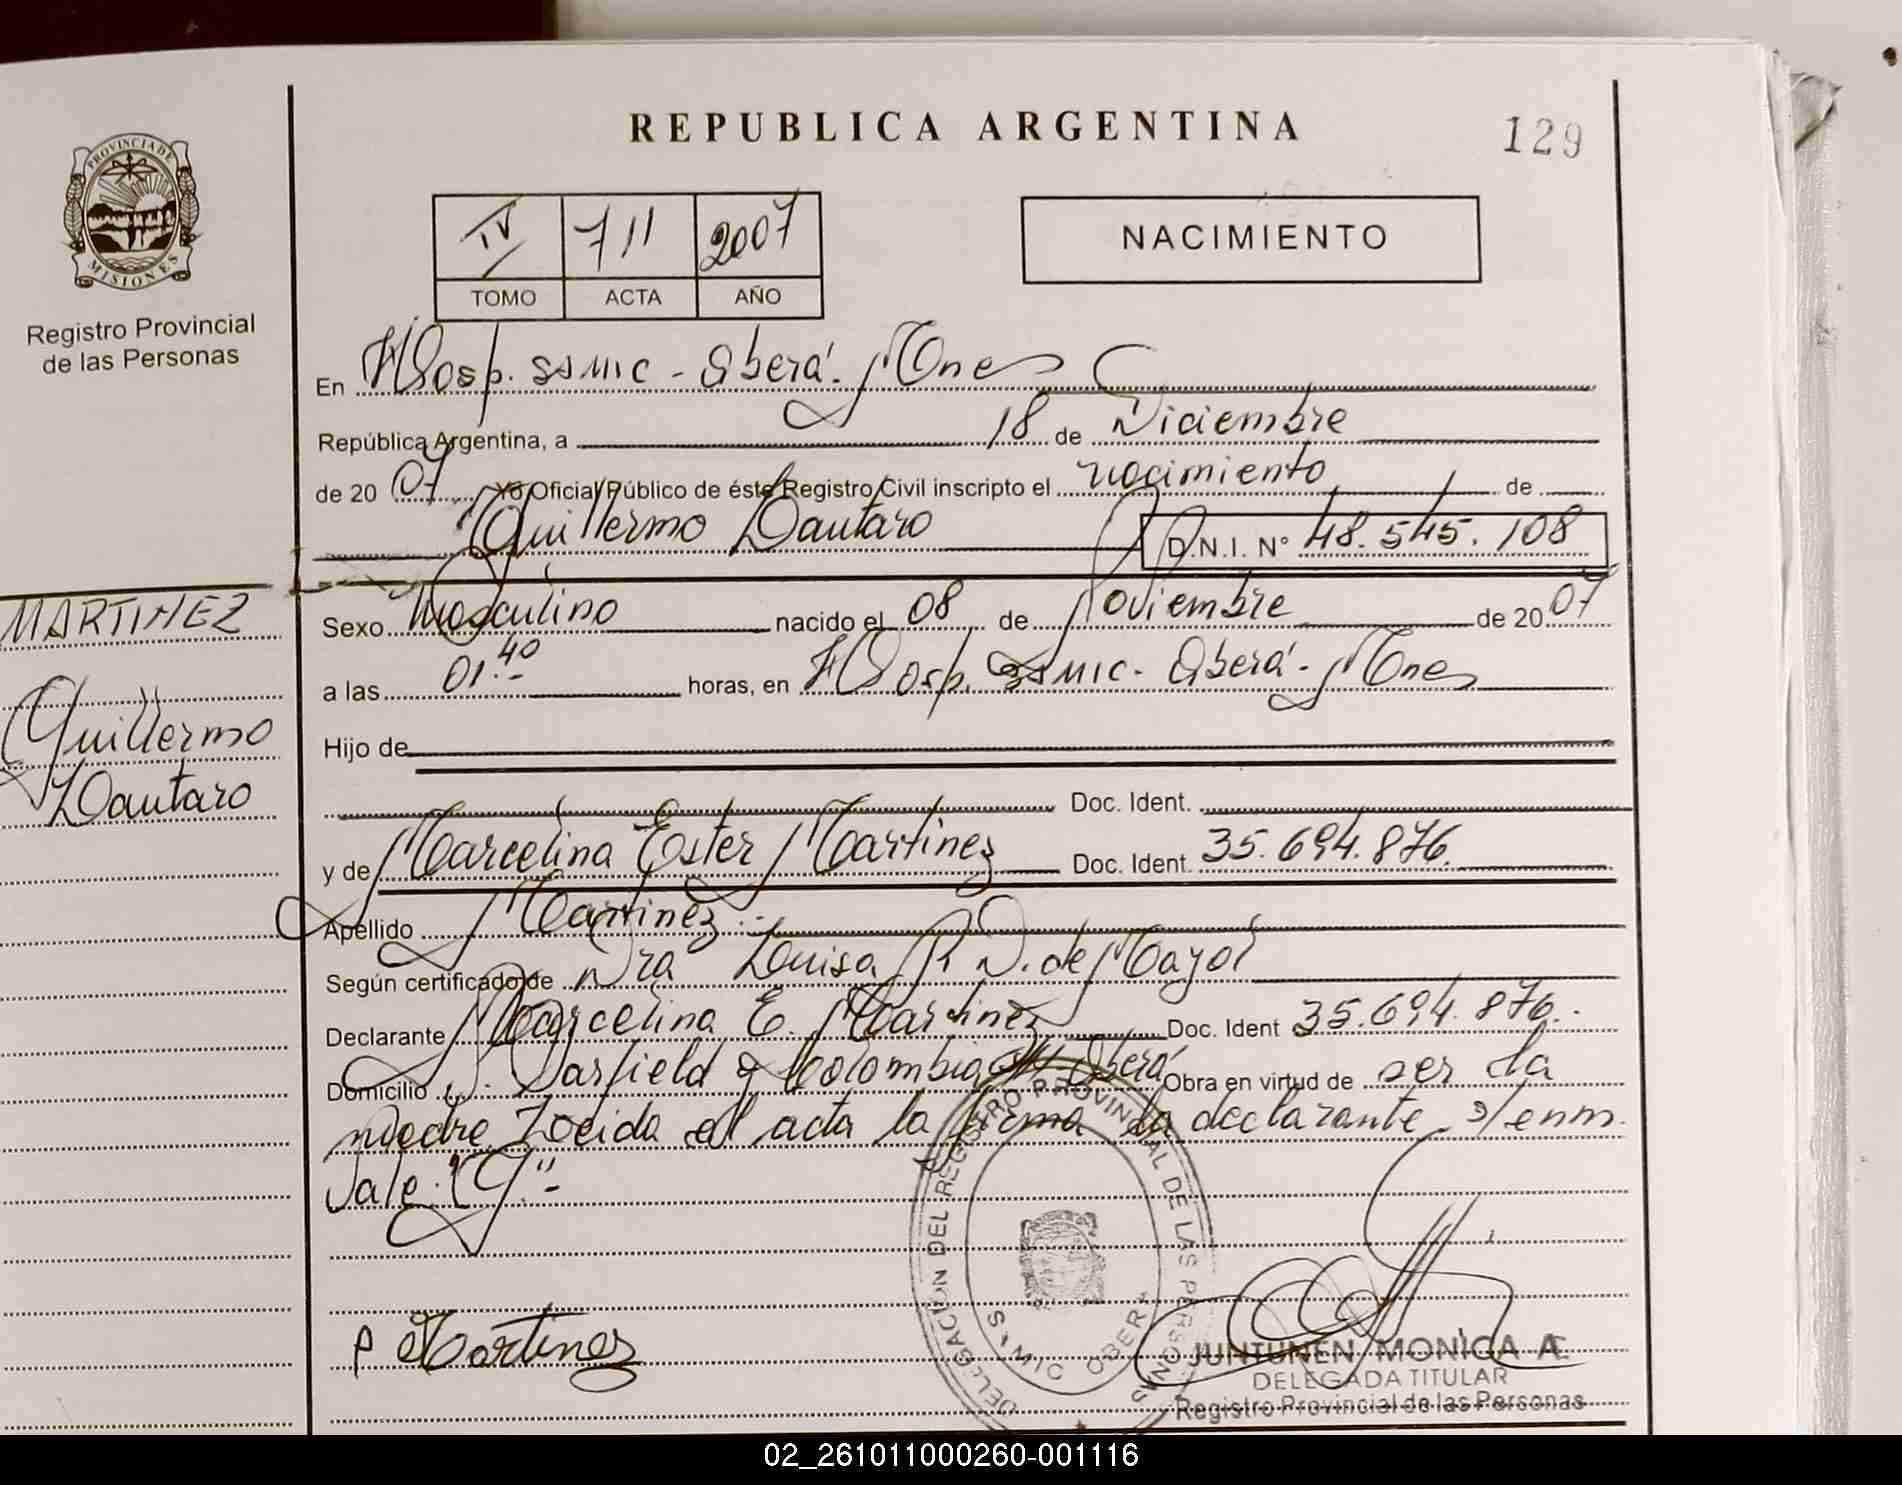 REPUBLICA ARGENTINA
129
PROVINCIA DE
MISIONES
Registro Provincial
de las Personas
IV 711 2007
TOMO ACTA AÑO
NACIMIENTO
En Hosp. SSMIC - Oberá - Mnes
República Argentina, a 18 de Diciembre
de 20 07 Yo Oficial Público de éste Registro Civil inscripto el nacimiento de
Guillermo Lautaro D.N.I. N° 48.545.108
MARTINEZ
Guillermo
Lautaro
Sexo Masculino nacido el 08 de Noviembre de 20 07
a las 01.40 horas, en Hosp. SSMIC - Oberá - Mnes
Hijo de
Doc. Ident.
y de Marcelina Ester Martinez Doc. Ident. 35.694.876
Apellido Martinez
Según certificado de Dra Luisa R. D. de Mayol
Declarante Marcelina E. Martinez Doc. Ident 35.694.876
Domicilio Sarfield y Colombia Oberá Obra en virtud de ser la
madre Leida el acta la firma la declarante s/enm.
Vale "G"
P Martinez
DELEGACION DEL REGISTRO PROVINCIAL DE LAS PERSONAS
OBERA
JUNTUNEN MONICA A.
DELEGADA TITULAR
Registro Provincial de las Personas
02_261011000260-001116